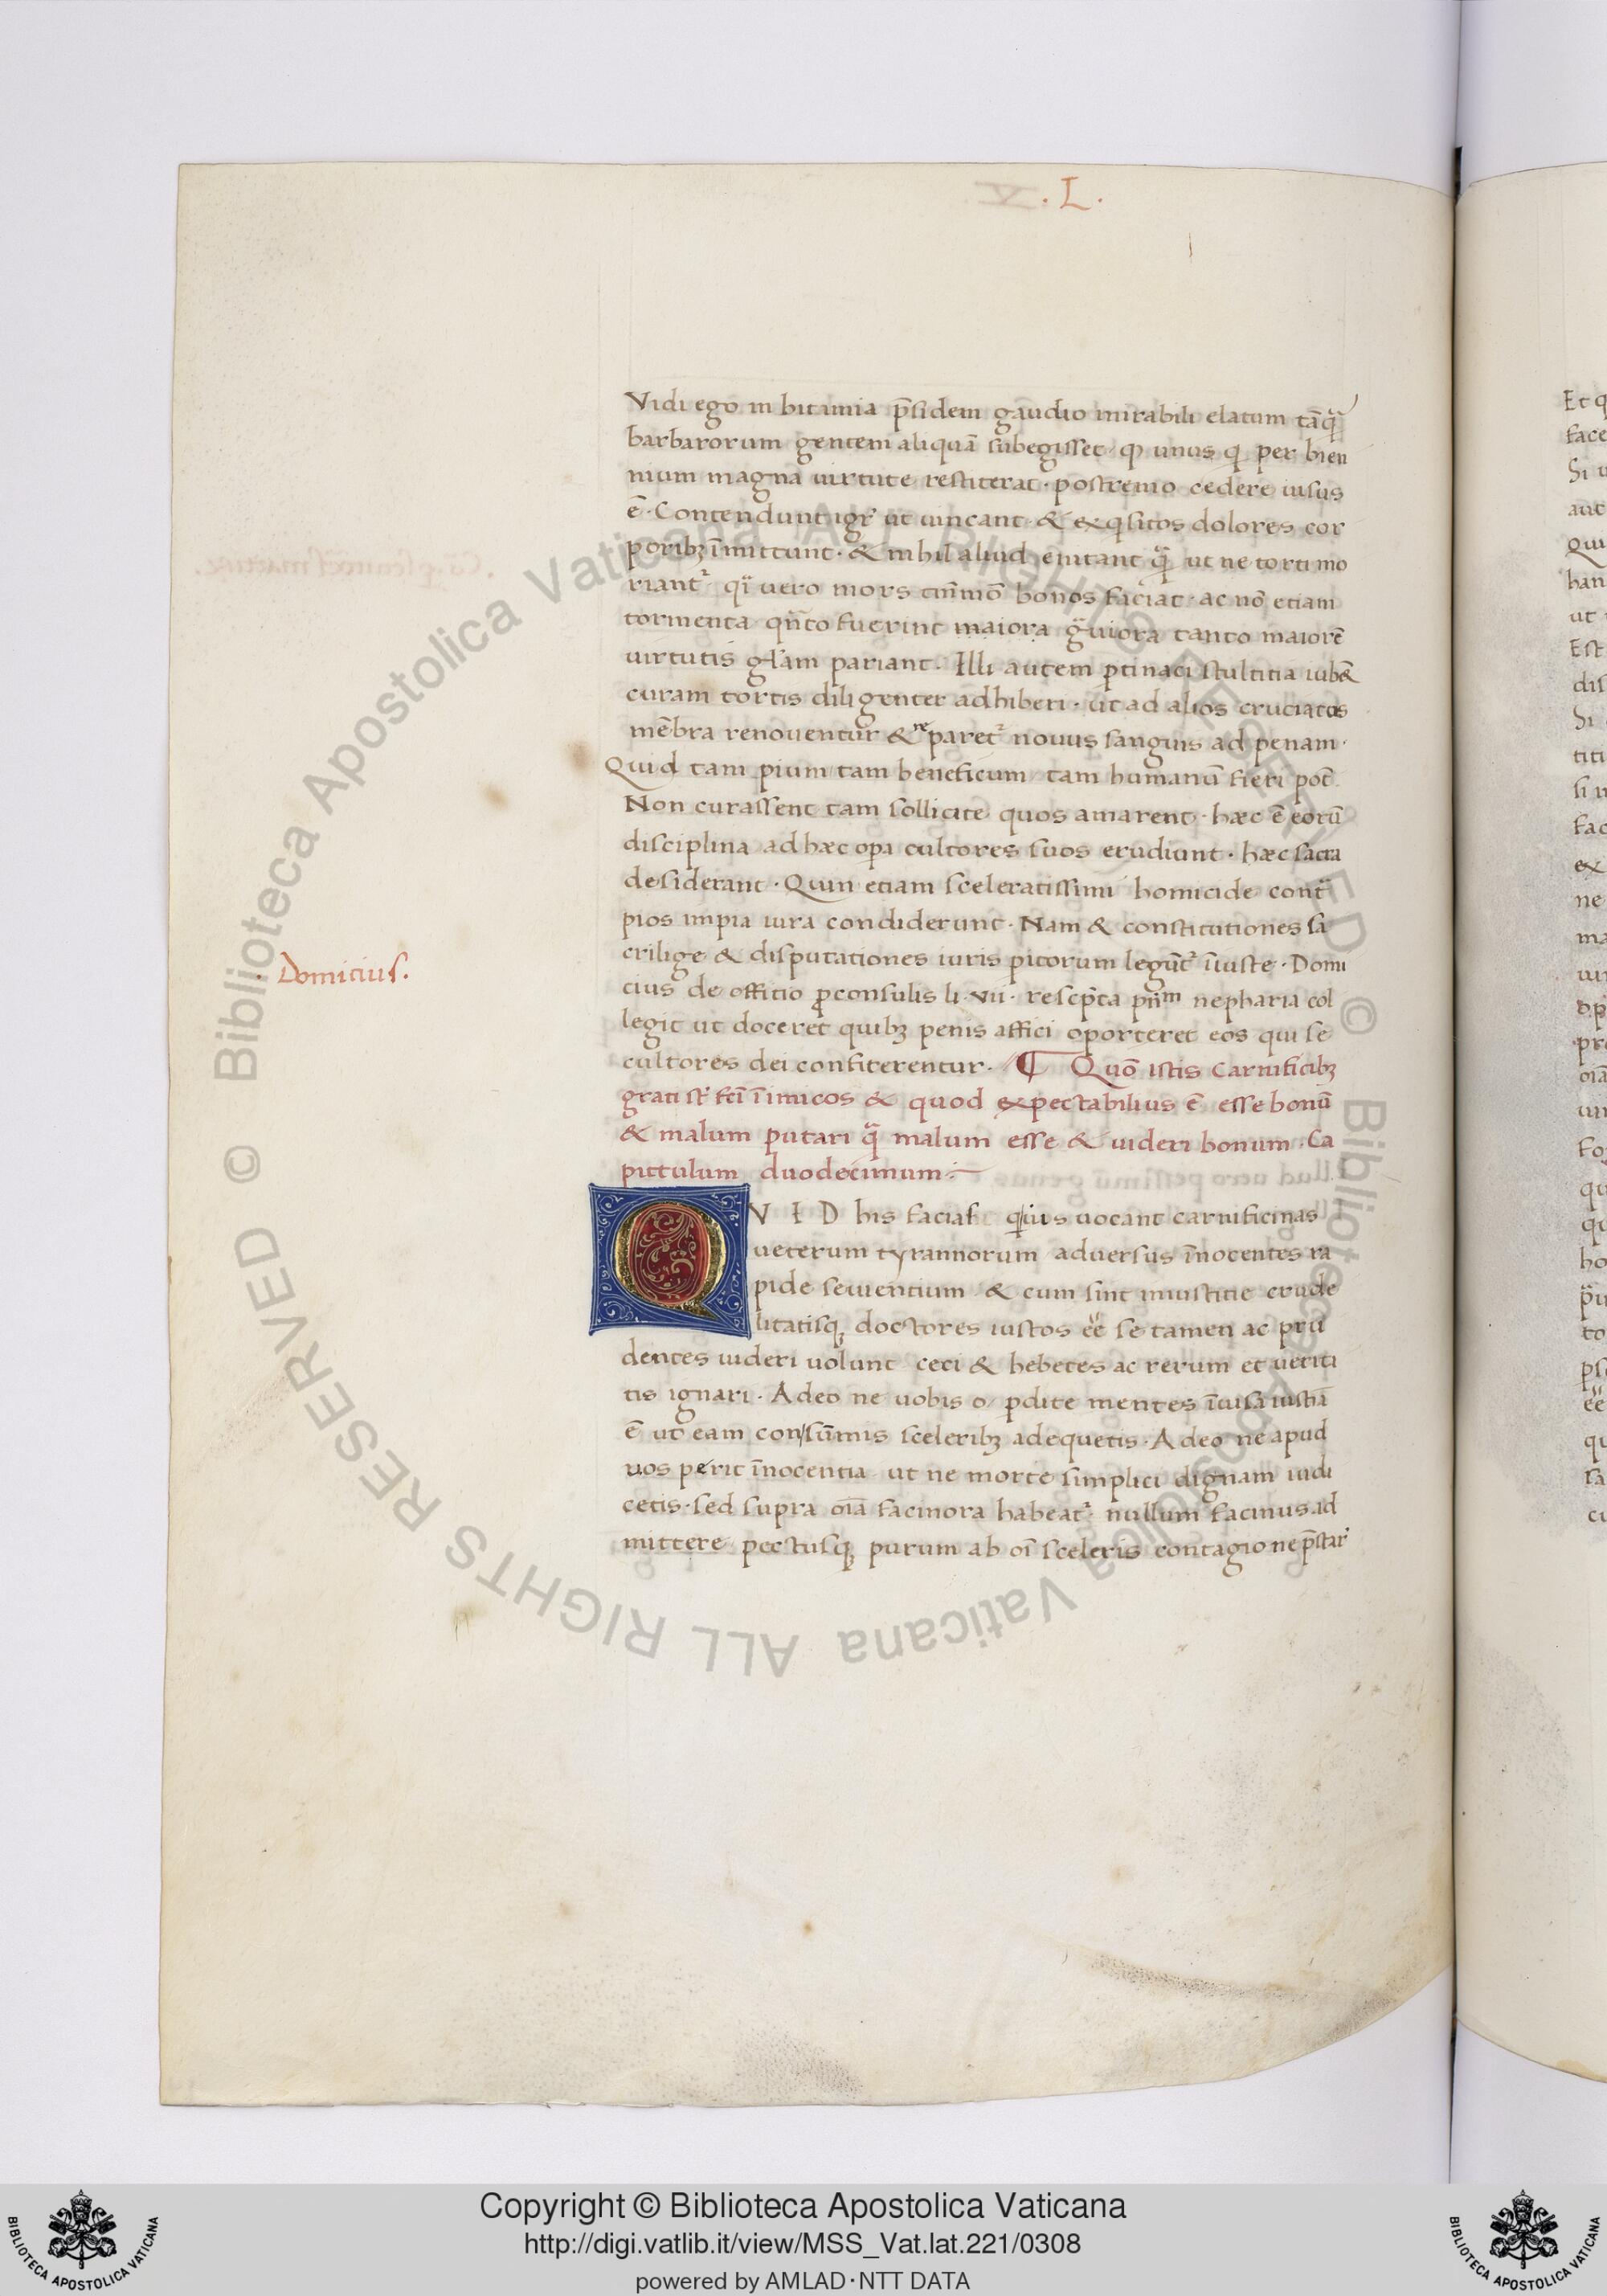 . L .
Vidi ego in bitinia p̄sidem gaudio mirabili elatum tāq̄
barbarorum gentem aliquā subegisset · q̨ unus q̨ per bien
nium magna uirtute restiterat · postremo cedere uisus
ē · Contendunt igr̄ ut uincant & exq̨sitos dolores cor
poribꝫ īmittunt · & nihil aliud euitant q̄ ut ne torti mo
riant᷑ · qi uero mors tm̄mō bonos faciat · ac nō etiam
tormenta qn̄to fuerint maiora gͣuiora tanto maiorē
uirtutis gl̄am pariant · Illi autem ꝑtinaci stultitia iubē&
curam tortis diligenter adhiberi · ut ad alios cruciatos
mēbra renouentur & reparet᷑ nouus sanguis ad penam ·
Quid tam pium tam beneficum tam humanū fieri pot̄
Non curassent tam sollicite quos amarent · hæc ē eorū
disciplina ad hæc oꝑa cultores suos erudiunt · hæc sacra
desiderant · Quin etiam sceleratissimi homicide contͣ
pios impia iura condiderunt · Nam & constitutiones sa
crilige & disputationes iuris pitorum legūt᷑ īiuste · Domi
cius de offitio ꝓconsulis li · vii · rescp̄ta pn̄m nepharia col
legit ut doceret quibꝫ penis affici oporteret eos qui se
cultores dei confiterentur · ¶ Quō istis Carnificibꝫ
grati st̄ fc̄i īimicos & quod expectabilius ē esse bonū
& malum putari q̄ malum esse & uideri bonum · Ca
pittulum duodecimum ·
. Domitius .
QVID his facias qui ius uocant carnificinas
ueterum tyrannorum aduersus īnocentes ra
pide seuientium & cum sint iniustitie crude
litatisqꝫ doctores iustos ēē se tamen ac pru
dentes uideri uolunt ceci & hebetes ac rerum et uerita
tis ignari · Adeo ne uobis o ꝑdite mentes īuisa iustia
ē ut eam con sūmis sceleribꝫ adequetis · Adeo ne apud
uos perit īnocentia ut ne morte simplici dignam iudi
cetis · sed supra oīa facinora habeat᷑ nullum facinus ad
mittere pectusqꝫ purum ab oī sceleris contagione p̄star᷑
Copyright © Biblioteca Apostolica Vaticana
http://digi.vatlib.it/view/MSS_Vat.lat.221/0308
powered by AMLAD·NTT DATA
BIBLIOTECA APOSTOLICA VATICANA
BIBLIOTECA APOSTOLICA VATICANA
© Biblioteca Apostolica Vaticana ALL RIGHTS RESERVED © Biblioteca Apostolica Vaticana ALL RIGHTS RESERVED